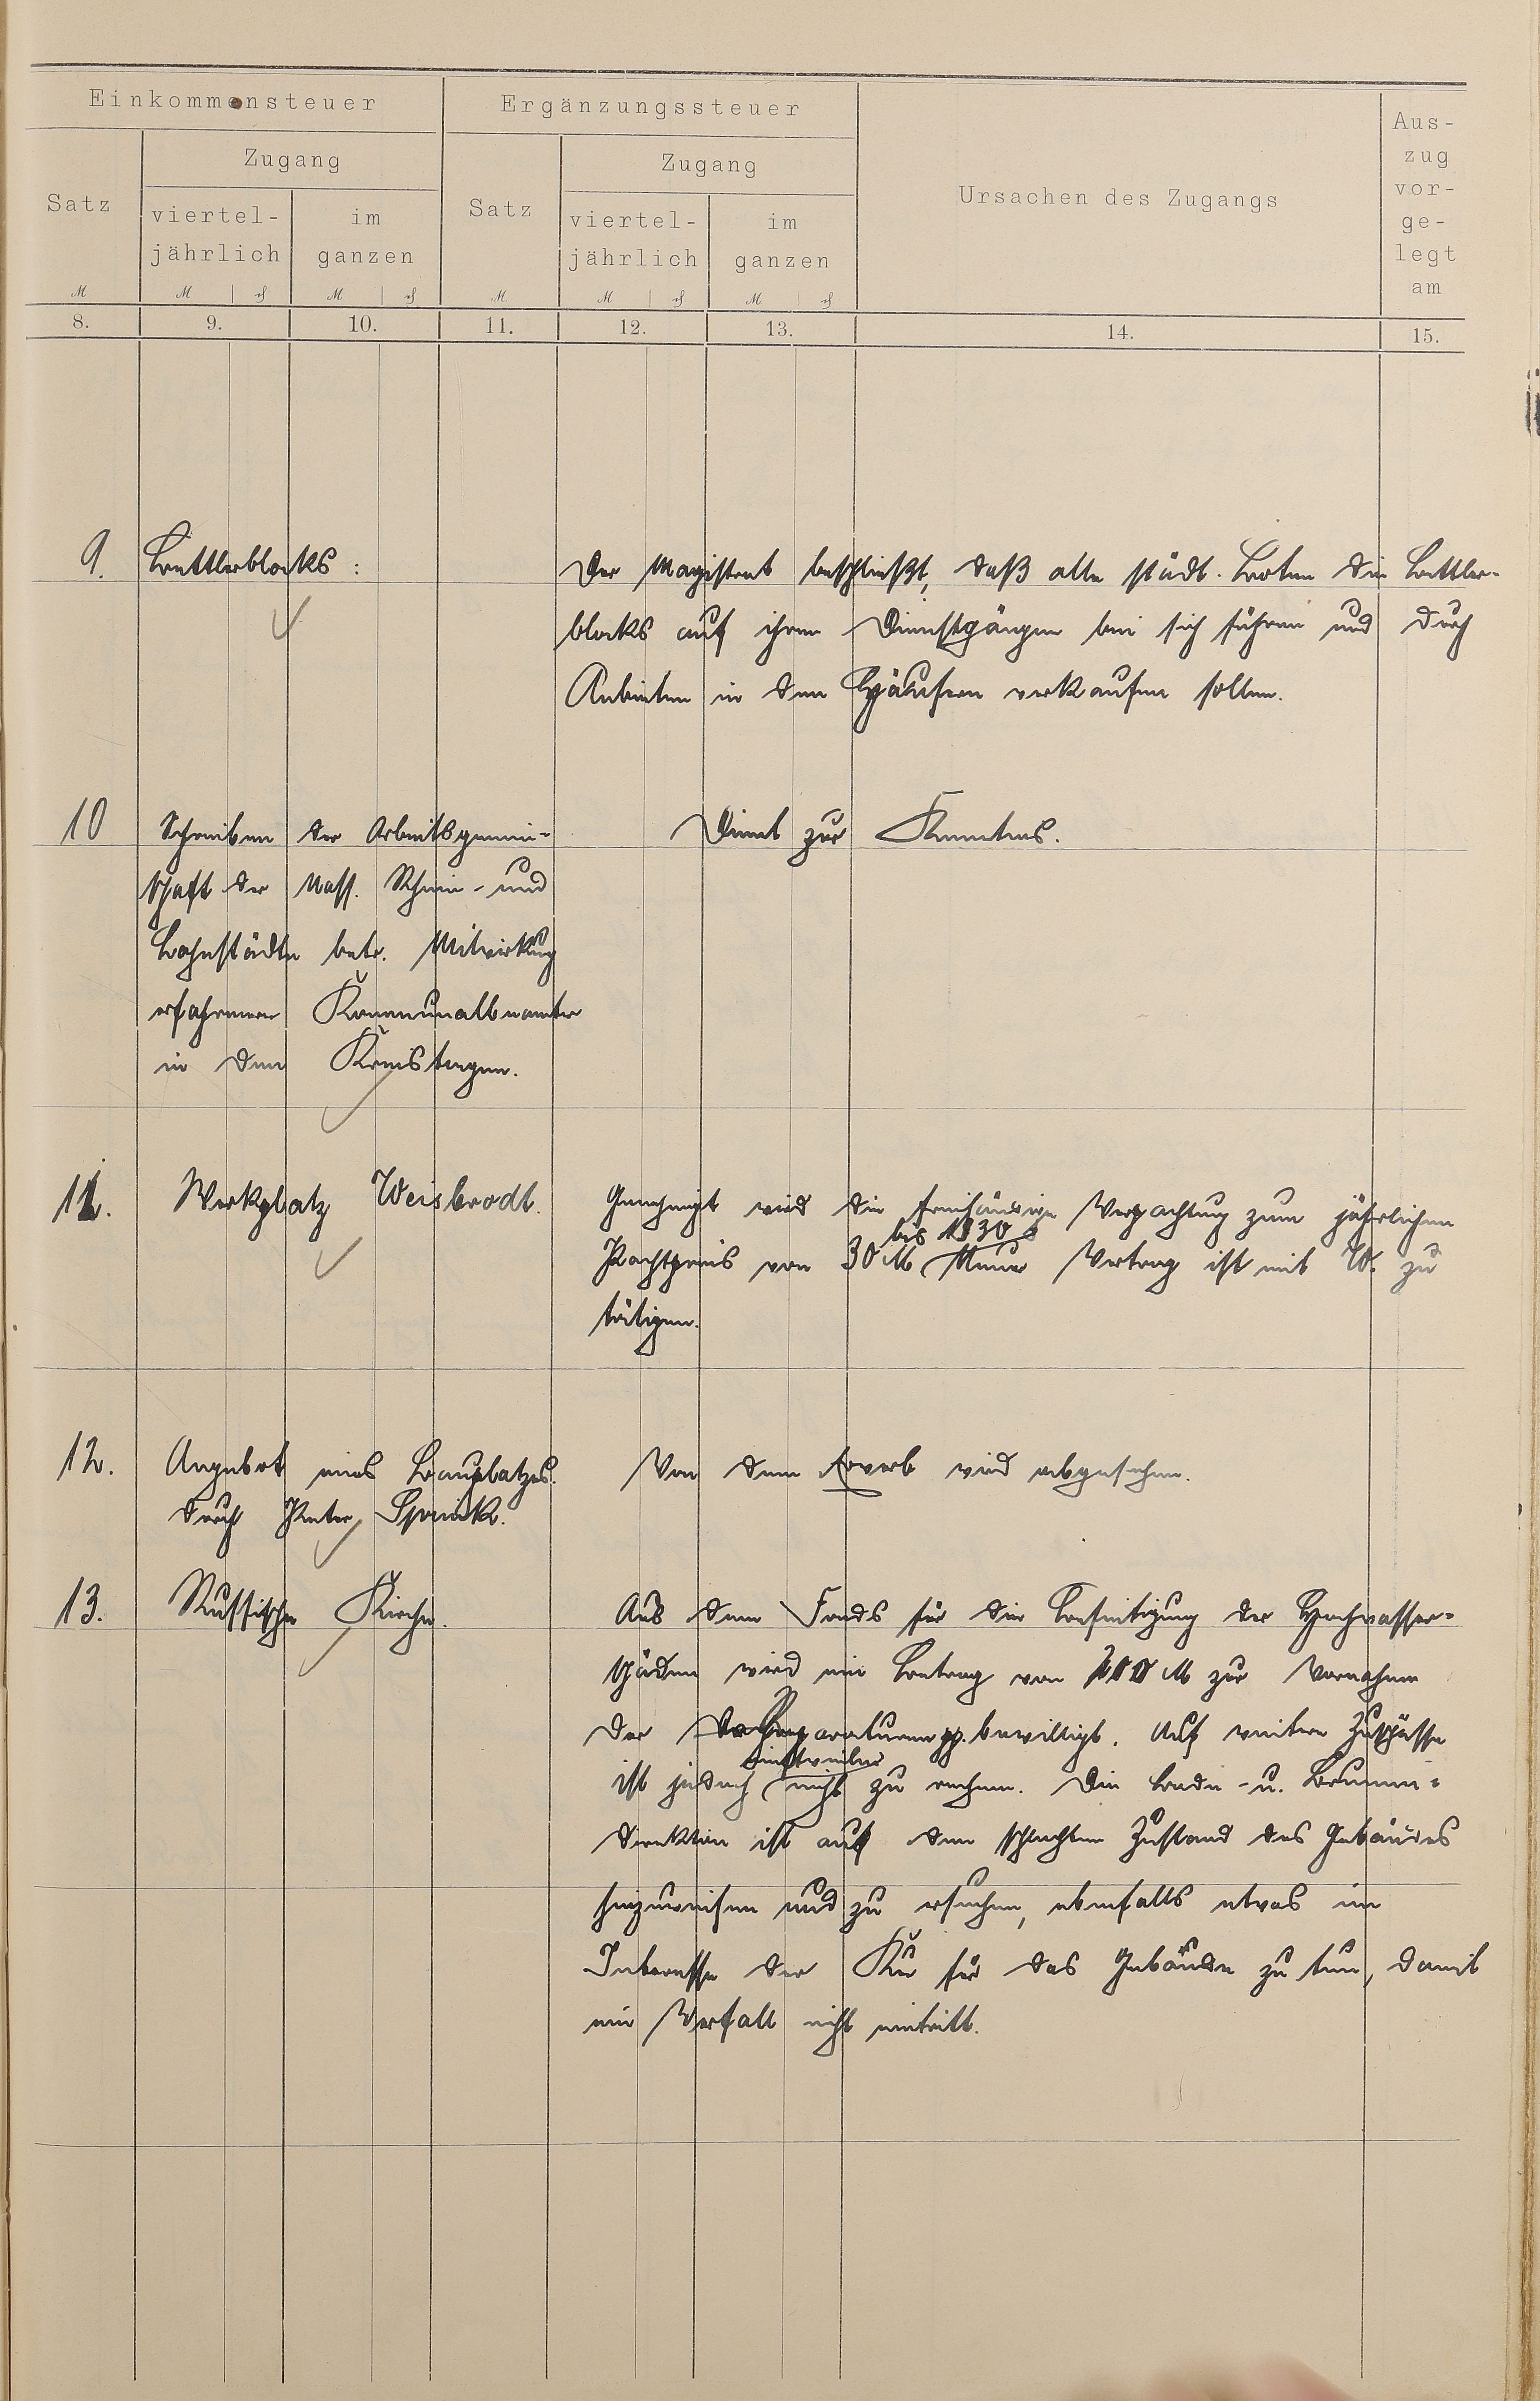 Einkommensteuer Ergänzungssteuer
Ursachen des Zugangs
Aus-
zug
vor-
ge-
legt
am
Satz Zugang Satz Zugang
viertel-
jährlich im
ganzen viertel-
jährlich im
ganzen
M M ₰ M ₰ M M ₰ M ₰
8. 9. 10. 11. 12. 13. 14. 15.
9. Bettlerblocks : Der Magistrat beschließt, daß alle städt. Boten die Bettler-
blocks auf ihren Dienstgängen bei sich führen und durch
Anbieten in den Häusern verkaufen sollen.
10 Schreiben der Arbeitsgemein- Dient zur Kenntnis.
schaft der Nass. Rhein- und
Lahnstädte betr. Mitwirkung
erfahrener Kommunalbeamter
in den Kreistagen.
11. Werkplatz Weisbrodt. Genehmigt wird die freihändige Verpachtung zum jährlichen
bis 1930
Pachtpreis von 30 M Neuer Vertrag ist mit W. zu
tätigen.
12. Angebot eines Bauplatzes. Von dem Erwerb wird abgesehen.
durch Peter
13. Russische Kirche. Aus dem Fonds für die Beseitigung der Hochwasser-
schäden wird ein Betrag von 200 M zur Vornahme
der Reparaturen pp. bewilligt. Auf weitere Zuschüsse
einstweilen
ist jedoch nicht zu rechnen. Die Bade- u. Brunnen-
direktion ist auf den schlechten Zustand des Gebäudes
hinzuweisen und zu ersuchen, ebenfalls etwas im
Interesse der Kur für das Gebäude zu tun, damit
ein Verfall nicht eintritt.